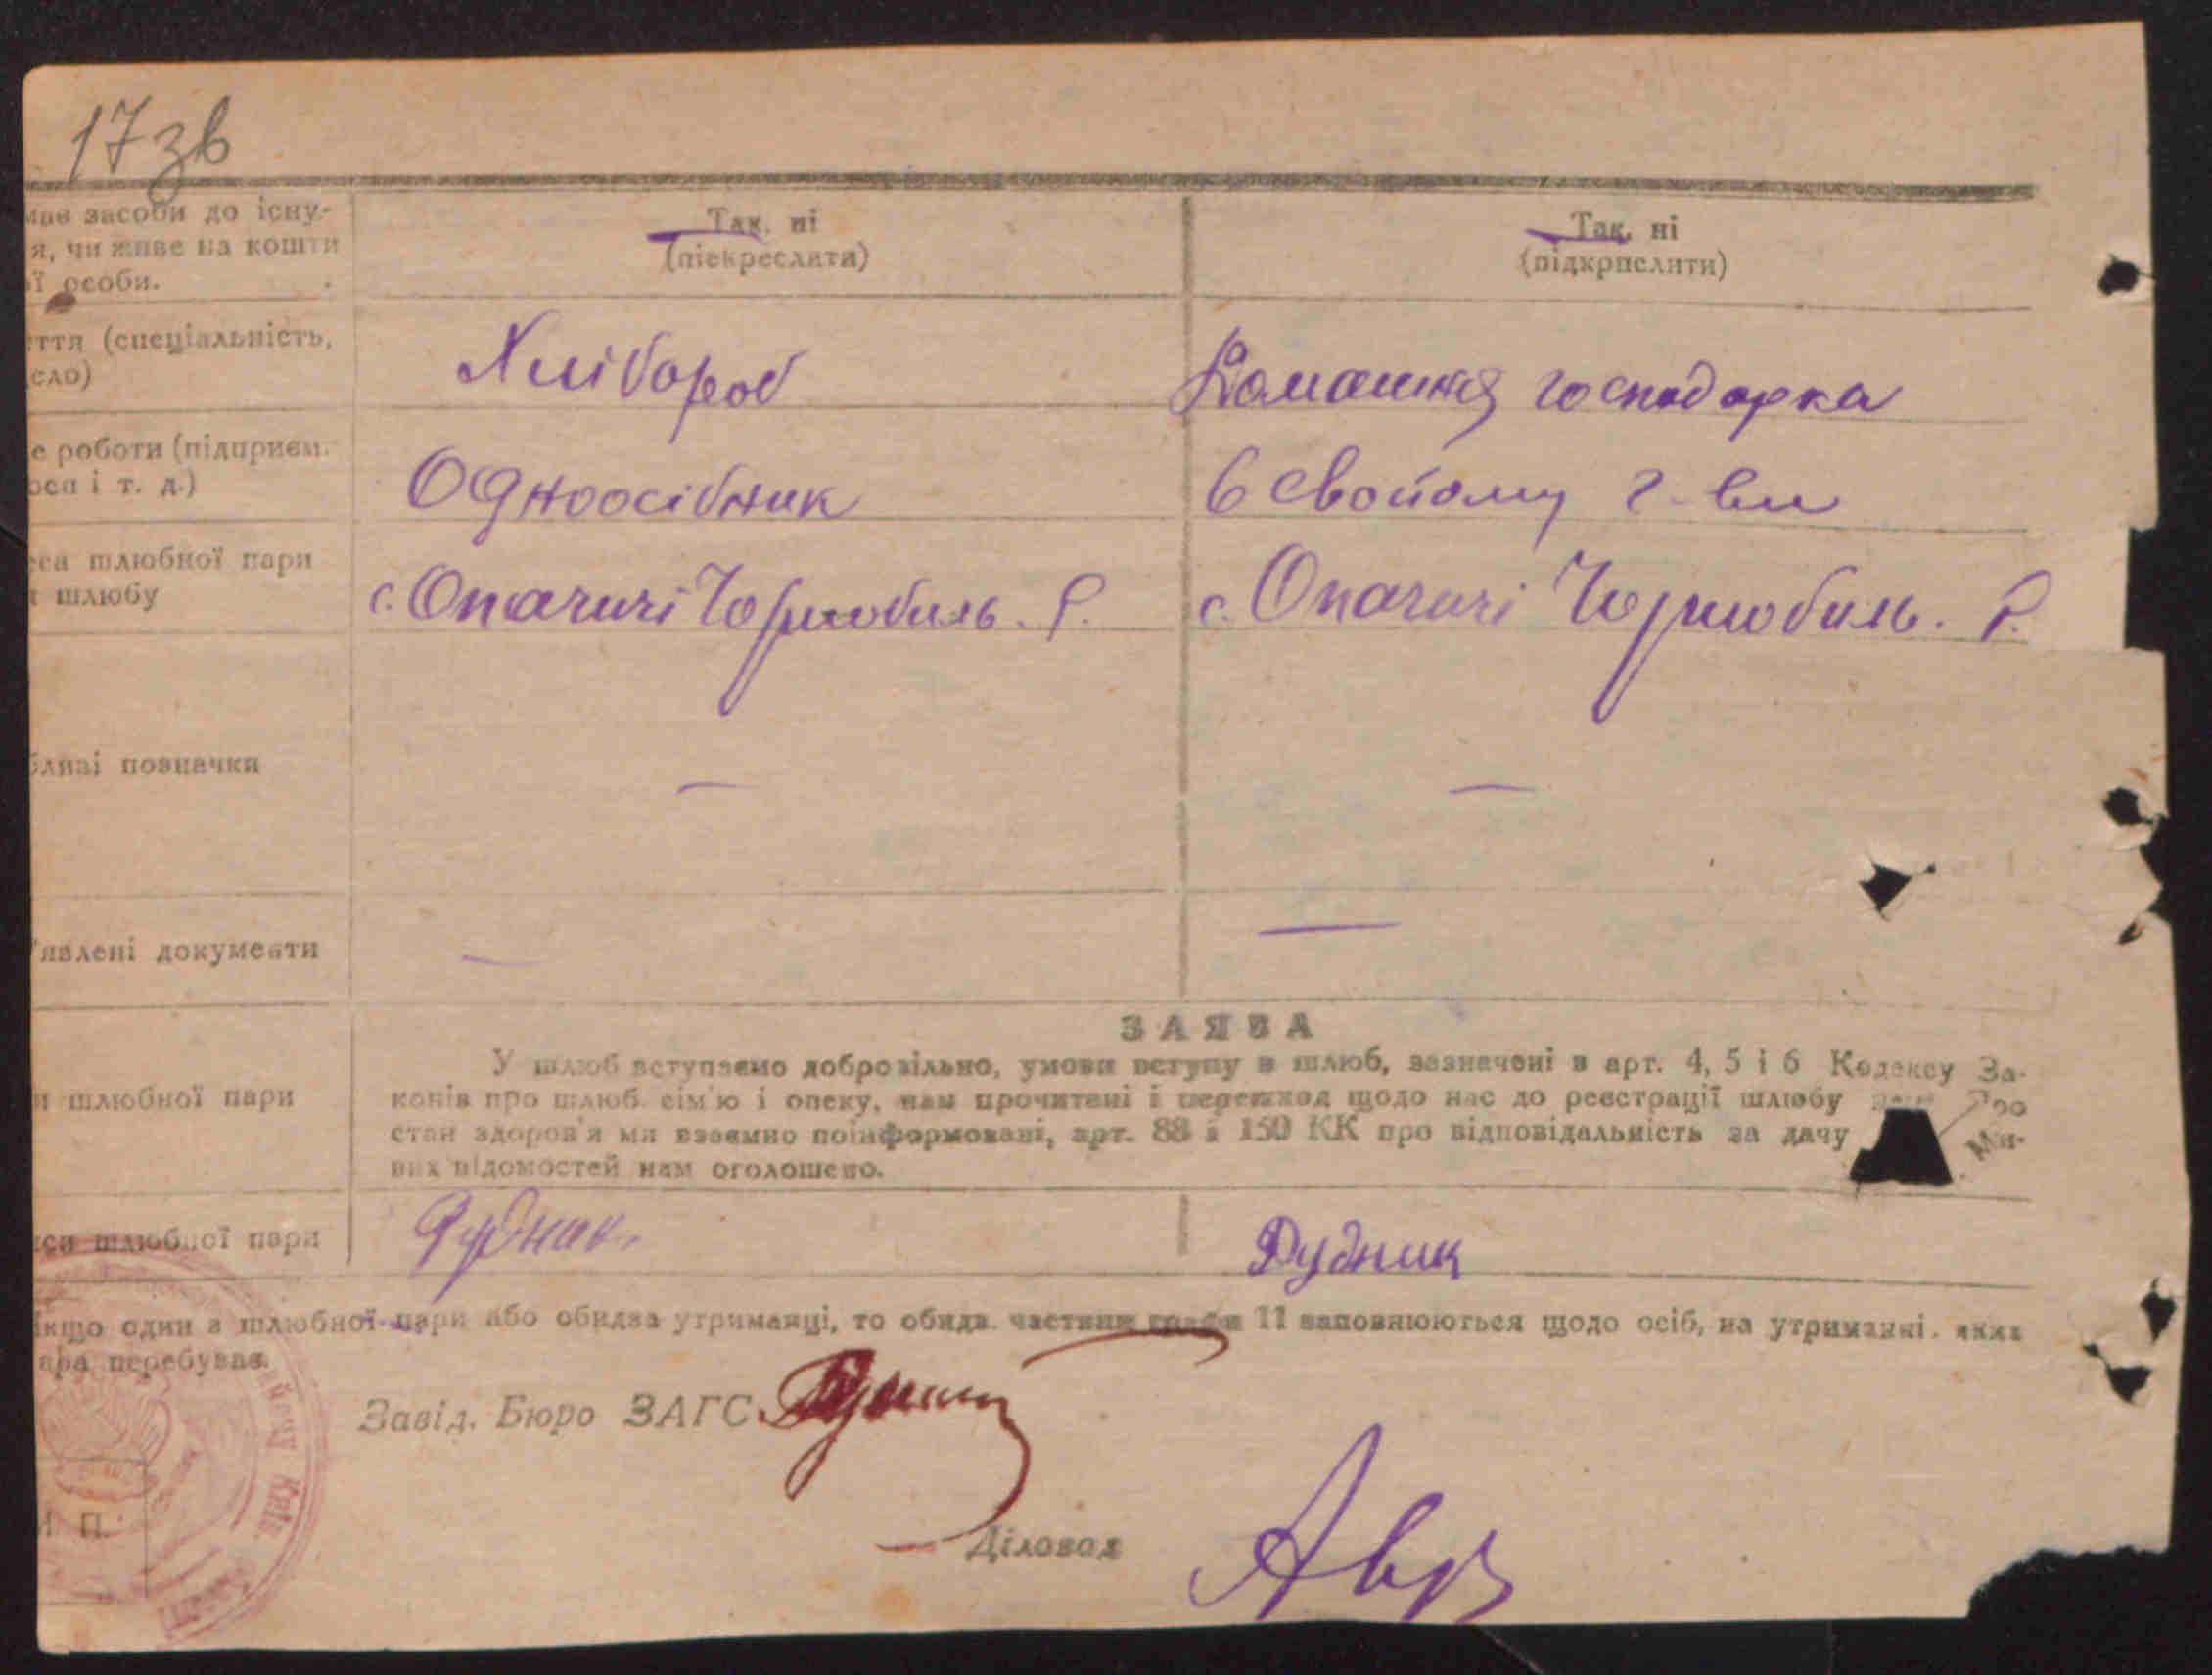 17 зв
має засоби до існу- Так, ні Так, ні
я, чи живе на кошти (піекреслити) (підкрпслити)
ї особи.
ття (спеціальність, Хлібороб Домашня господарка
сло)
е роботи (підприєм. Одноосібник в свойому г-ви
оса і т. д.)
са шлюбної пари с. Опачичі Чорнобиль. Р. с. Опачичі Чорнобиль. Р.
шлюбу
бливі позначки — —
'явлені документи — —
ЗАЯВА
У шлюб вступаємо добровільно, умови вступу в шлюб, зазначені в арт. 4, 5 і 6 Кодексу За-
и шлюбної пари конів про шлюб. сім'ю і опеку, нам прочитані і перешкод щодо нас до реєстрації шлюбу Про
стан здоров'я ми взаємно поінформовані, арт. 88 і 150 КК про відповідальність за дачу
вих відомостей нам оголошено.
си шлюбної пари Рудник
якщо один з шлюбної пари або обидва утриманці, то обидв. частини графи 11 заповнюються щодо осіб, на утриманні. яких
ара перебуває.
Завід. Бюро ЗАГС
М. П.
Діловод